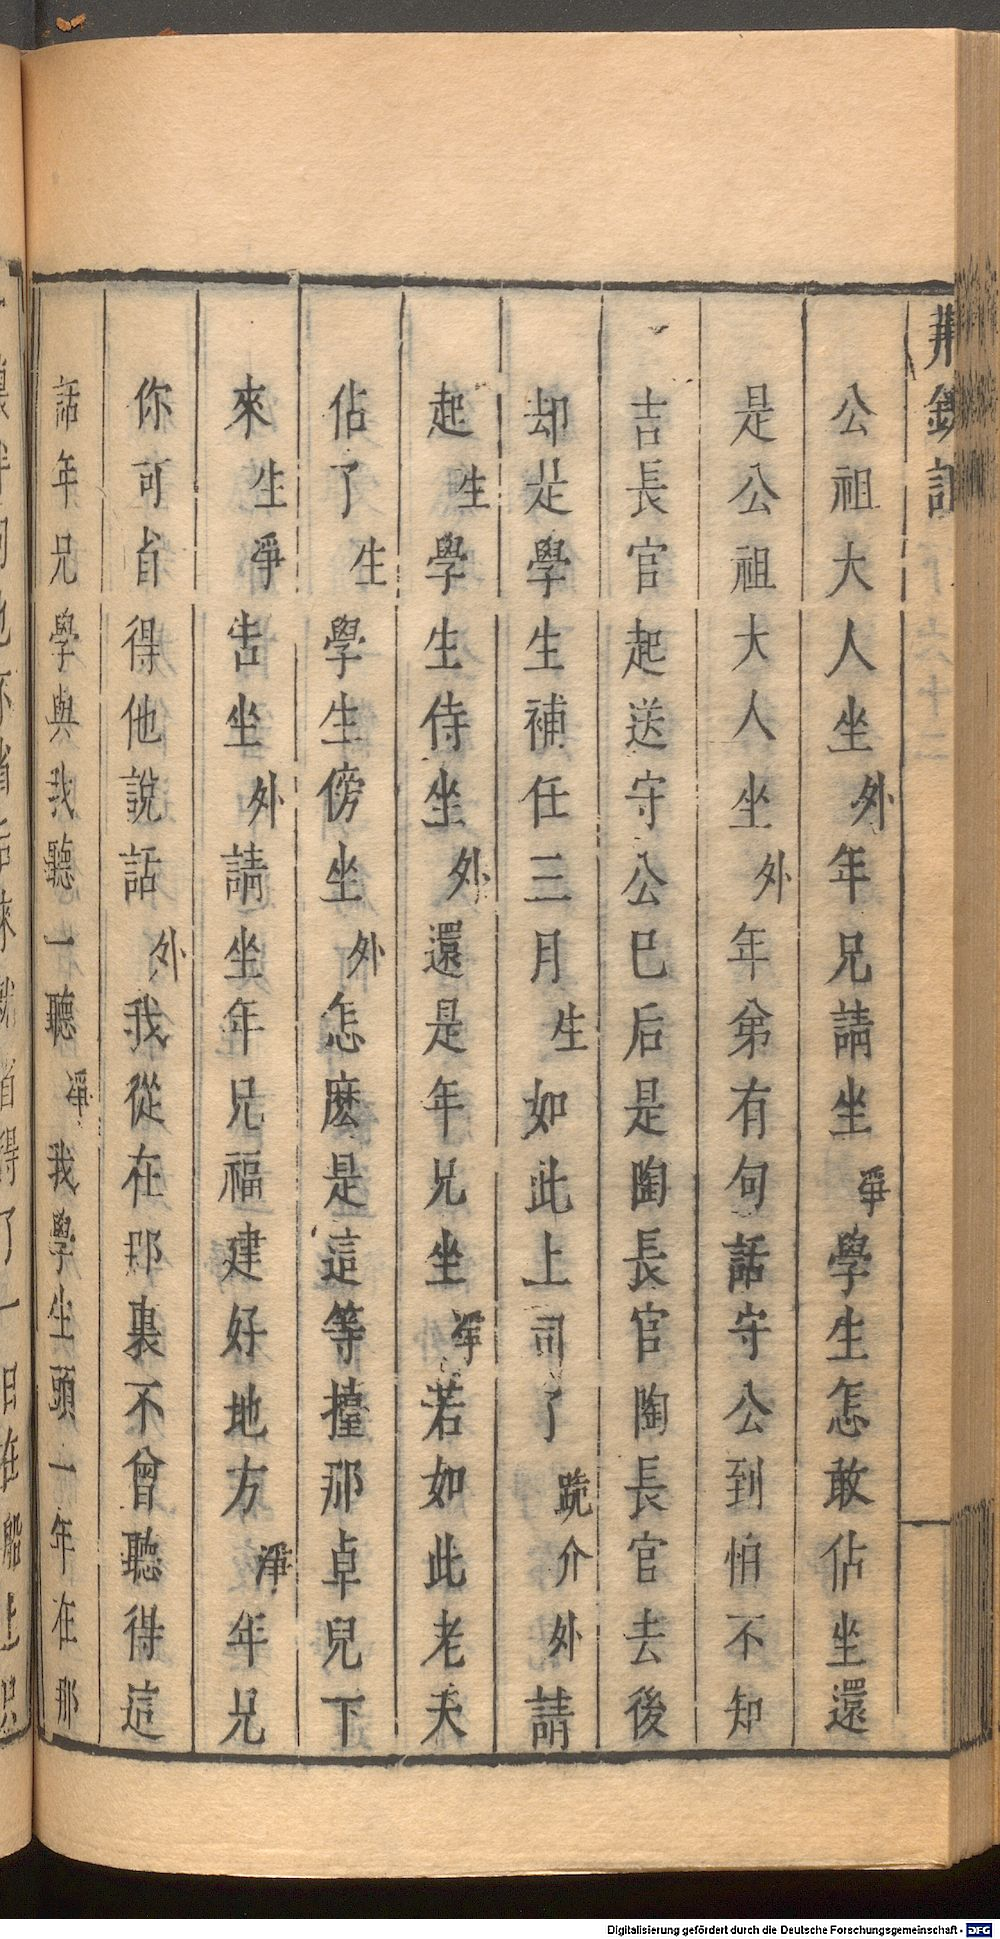 荆釵記
公祖大人坐外年兄請坐淨學生怎敢佔坐還
是公祖大人坐外年弟有句話守公到怕不知
吉長官起送守公巳后是陶長官陶長官去後
却是學生補任三月生如此上司了跪介外請
起生學生侍坐外還是年兄坐淨若如此老夫
佔了生學生傍坐外怎麽是這等擡那卓兒下
來生淨告坐外請坐年兄福建好地方淨年兄
你可省得他說話外我從在那裏不曾聽得這
話年兄學與我聽一聽淨我學生頭一年在那
Digitalisierung gefördert durch die Deutsche Forschungsgemeinschaft - DFG